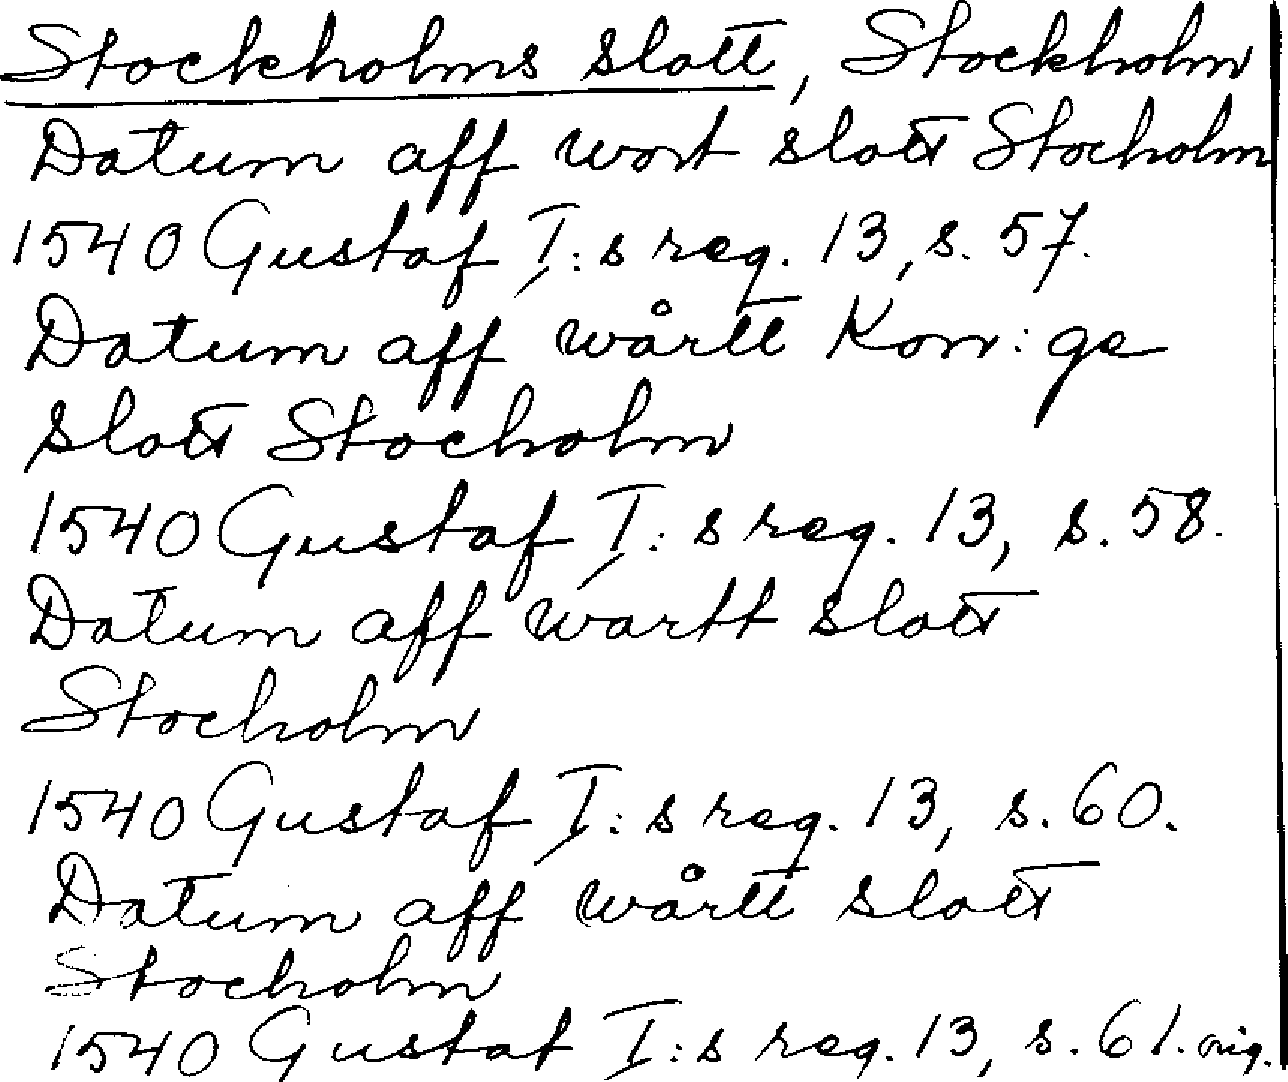 Stockholms slott, Stockholm
Datum aff wort slott Stocholm
1540 Gustaf I:s reg. 13, s. 57.
Datum aff wårtt Kon: ge
slott Stocholm
1540 Gustaf I:s reg. 13, s. 58.
Datum aff wartt slott
Stocholm
1540 Gustaf I:s reg. 13, s. 60.
Datum aff wårtt slott
Stocholm
1540 Gustaf I:s reg. 13, s. 61. orig.